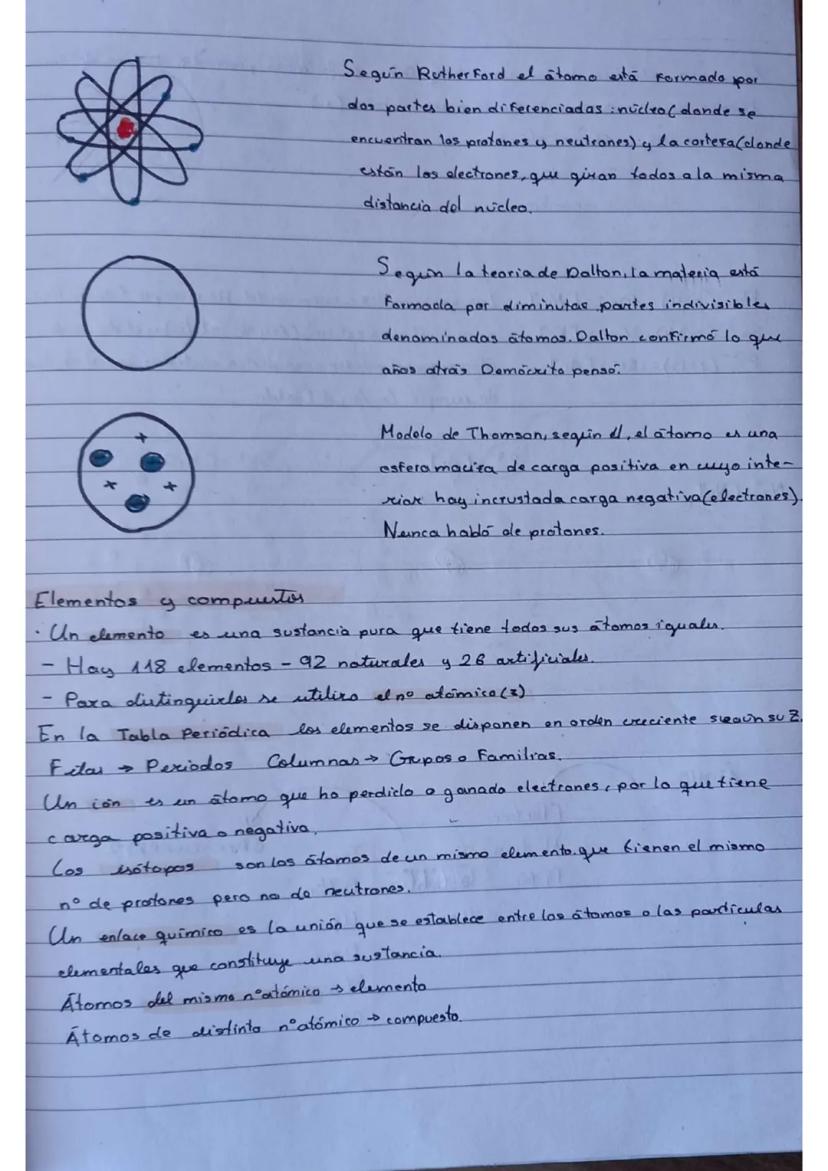 Según Rutherford el átomo está formado por
dos partes bien diferenciadas: núcleo (donde se
encuentran los protones y neutrones) y la corteza (donde
están los electrones, que giran todos a la misma
distancia del núcleo.
Según la teoría de Dalton, la materia está
formada por diminutas partes indivisibles
denominadas átomos. Dalton confirmó lo que
años atrás Demócrito pensó.
Modelo de Thomson, según él, el átomo es una
esfera maciza de carga positiva en cuyo inte-
rior hay incrustada carga negativa (electrones).
Nunca habló de protones.
+
+ +
Elementos y compuestos
· Un elemento es una sustancia pura que tiene todos sus átomos iguales.
- Hay 118 elementos - 92 naturales y 26 artificiales.
- Para distinguirlos se utiliza el nº atómico (z)
En la Tabla Periódica los elementos se disponen en orden creciente según su Z.
Filas → Periodos Columnas → Grupos o Familias.
Un ión es un átomo que ha perdido o ganado electrones, por lo que tiene
carga positiva o negativa.
Los isótopos son los átomos de un mismo elemento que tienen el mismo
nº de protones pero no de neutrones.
Un enlace químico es la unión que se establece entre los átomos o las partículas
elementales que constituye una sustancia.
Átomos del mismo nº atómico → elemento
Átomos de distinto nº atómico → compuesto.